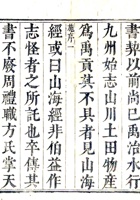 書契以前尚巳禹治水行
九州始志山川土田物産
爲禹貢其不具者見山海
經或曰山海經非伯益作
志怪者之所託也卒傳其
書不廢周禮職方氏掌天